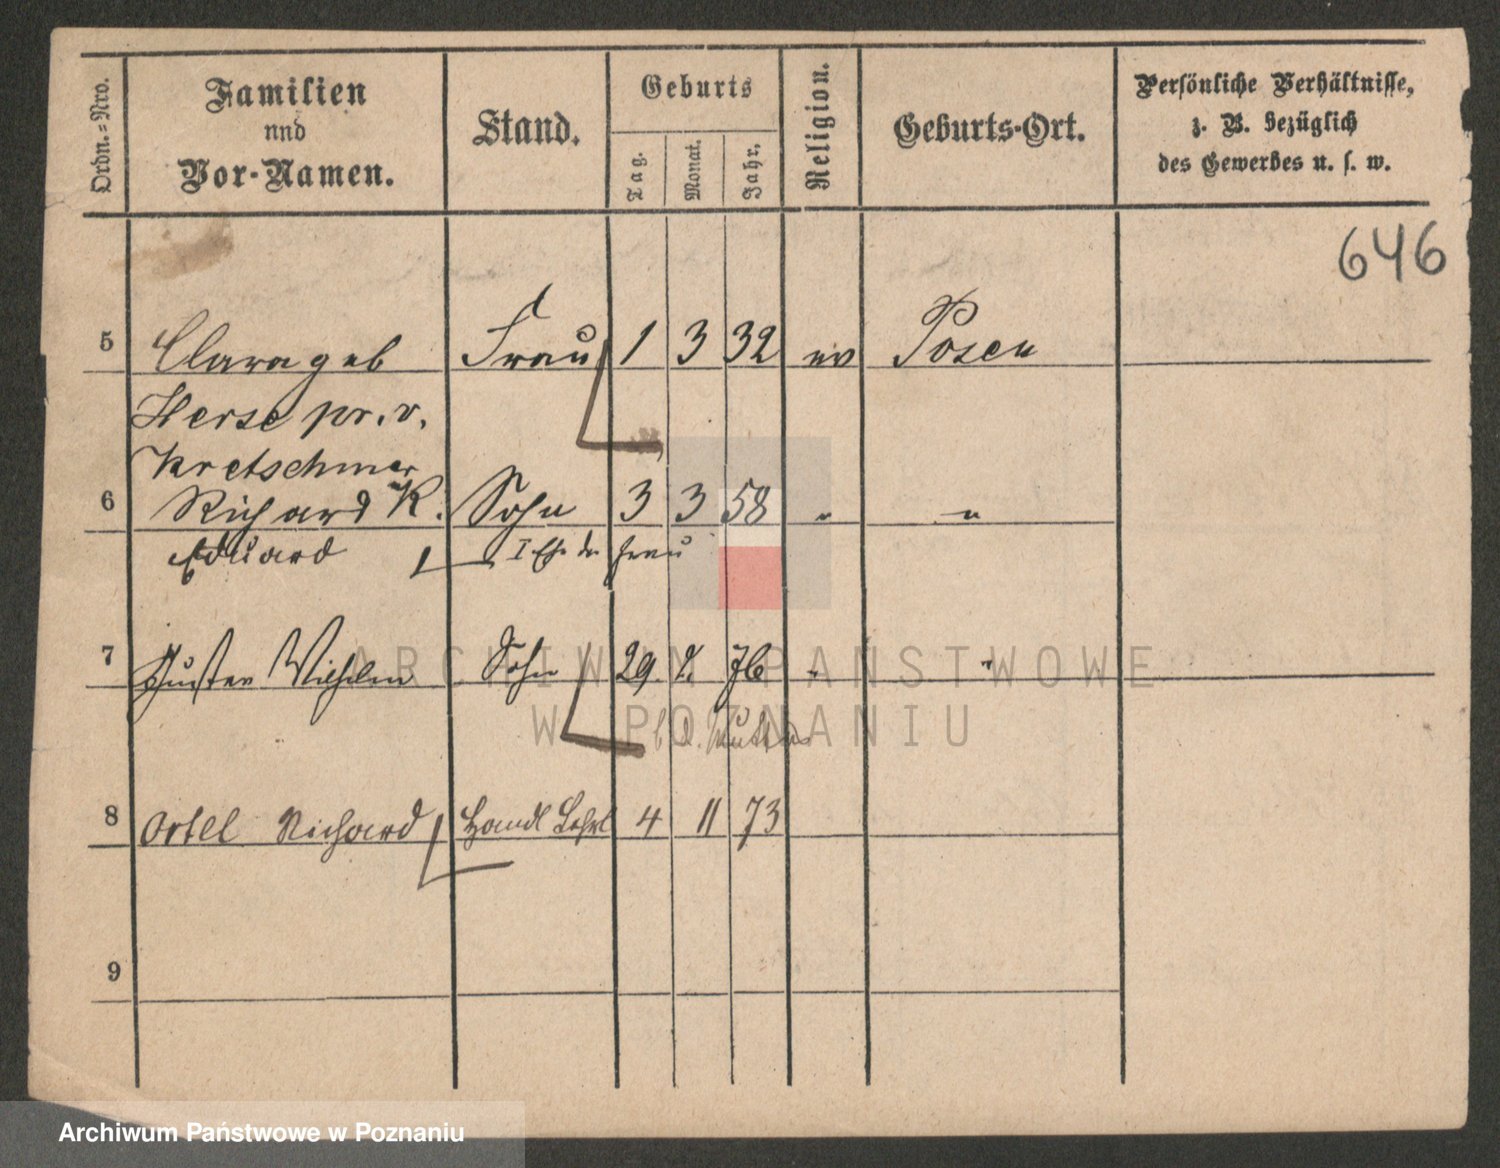 Ordn.-Nro.
Familien
und
Vor-Namen.
Stand.
Geburts
Tag.
Monat.
Jahr.
Religion.
Geburts-Ort.
Persönliche Verhältnisse,
z. B. bezüglich
des Gewerbes u. s. w.
646
5 Clara geb Frau 1 3 32 ev Posen
Herse pr. v.
Kretschmer
6 Richard K. Sohn 3 3 58 " "
Eduard I Eh. der Frau
7 Gustav Wilhelm Sohn 29 76 " "
8 Ortel Richard Handl Lehrl 4 11 73
9
ARCHIWUM PAŃSTWOWE
W POZNANIU
Archiwum Państwowe w Poznaniu